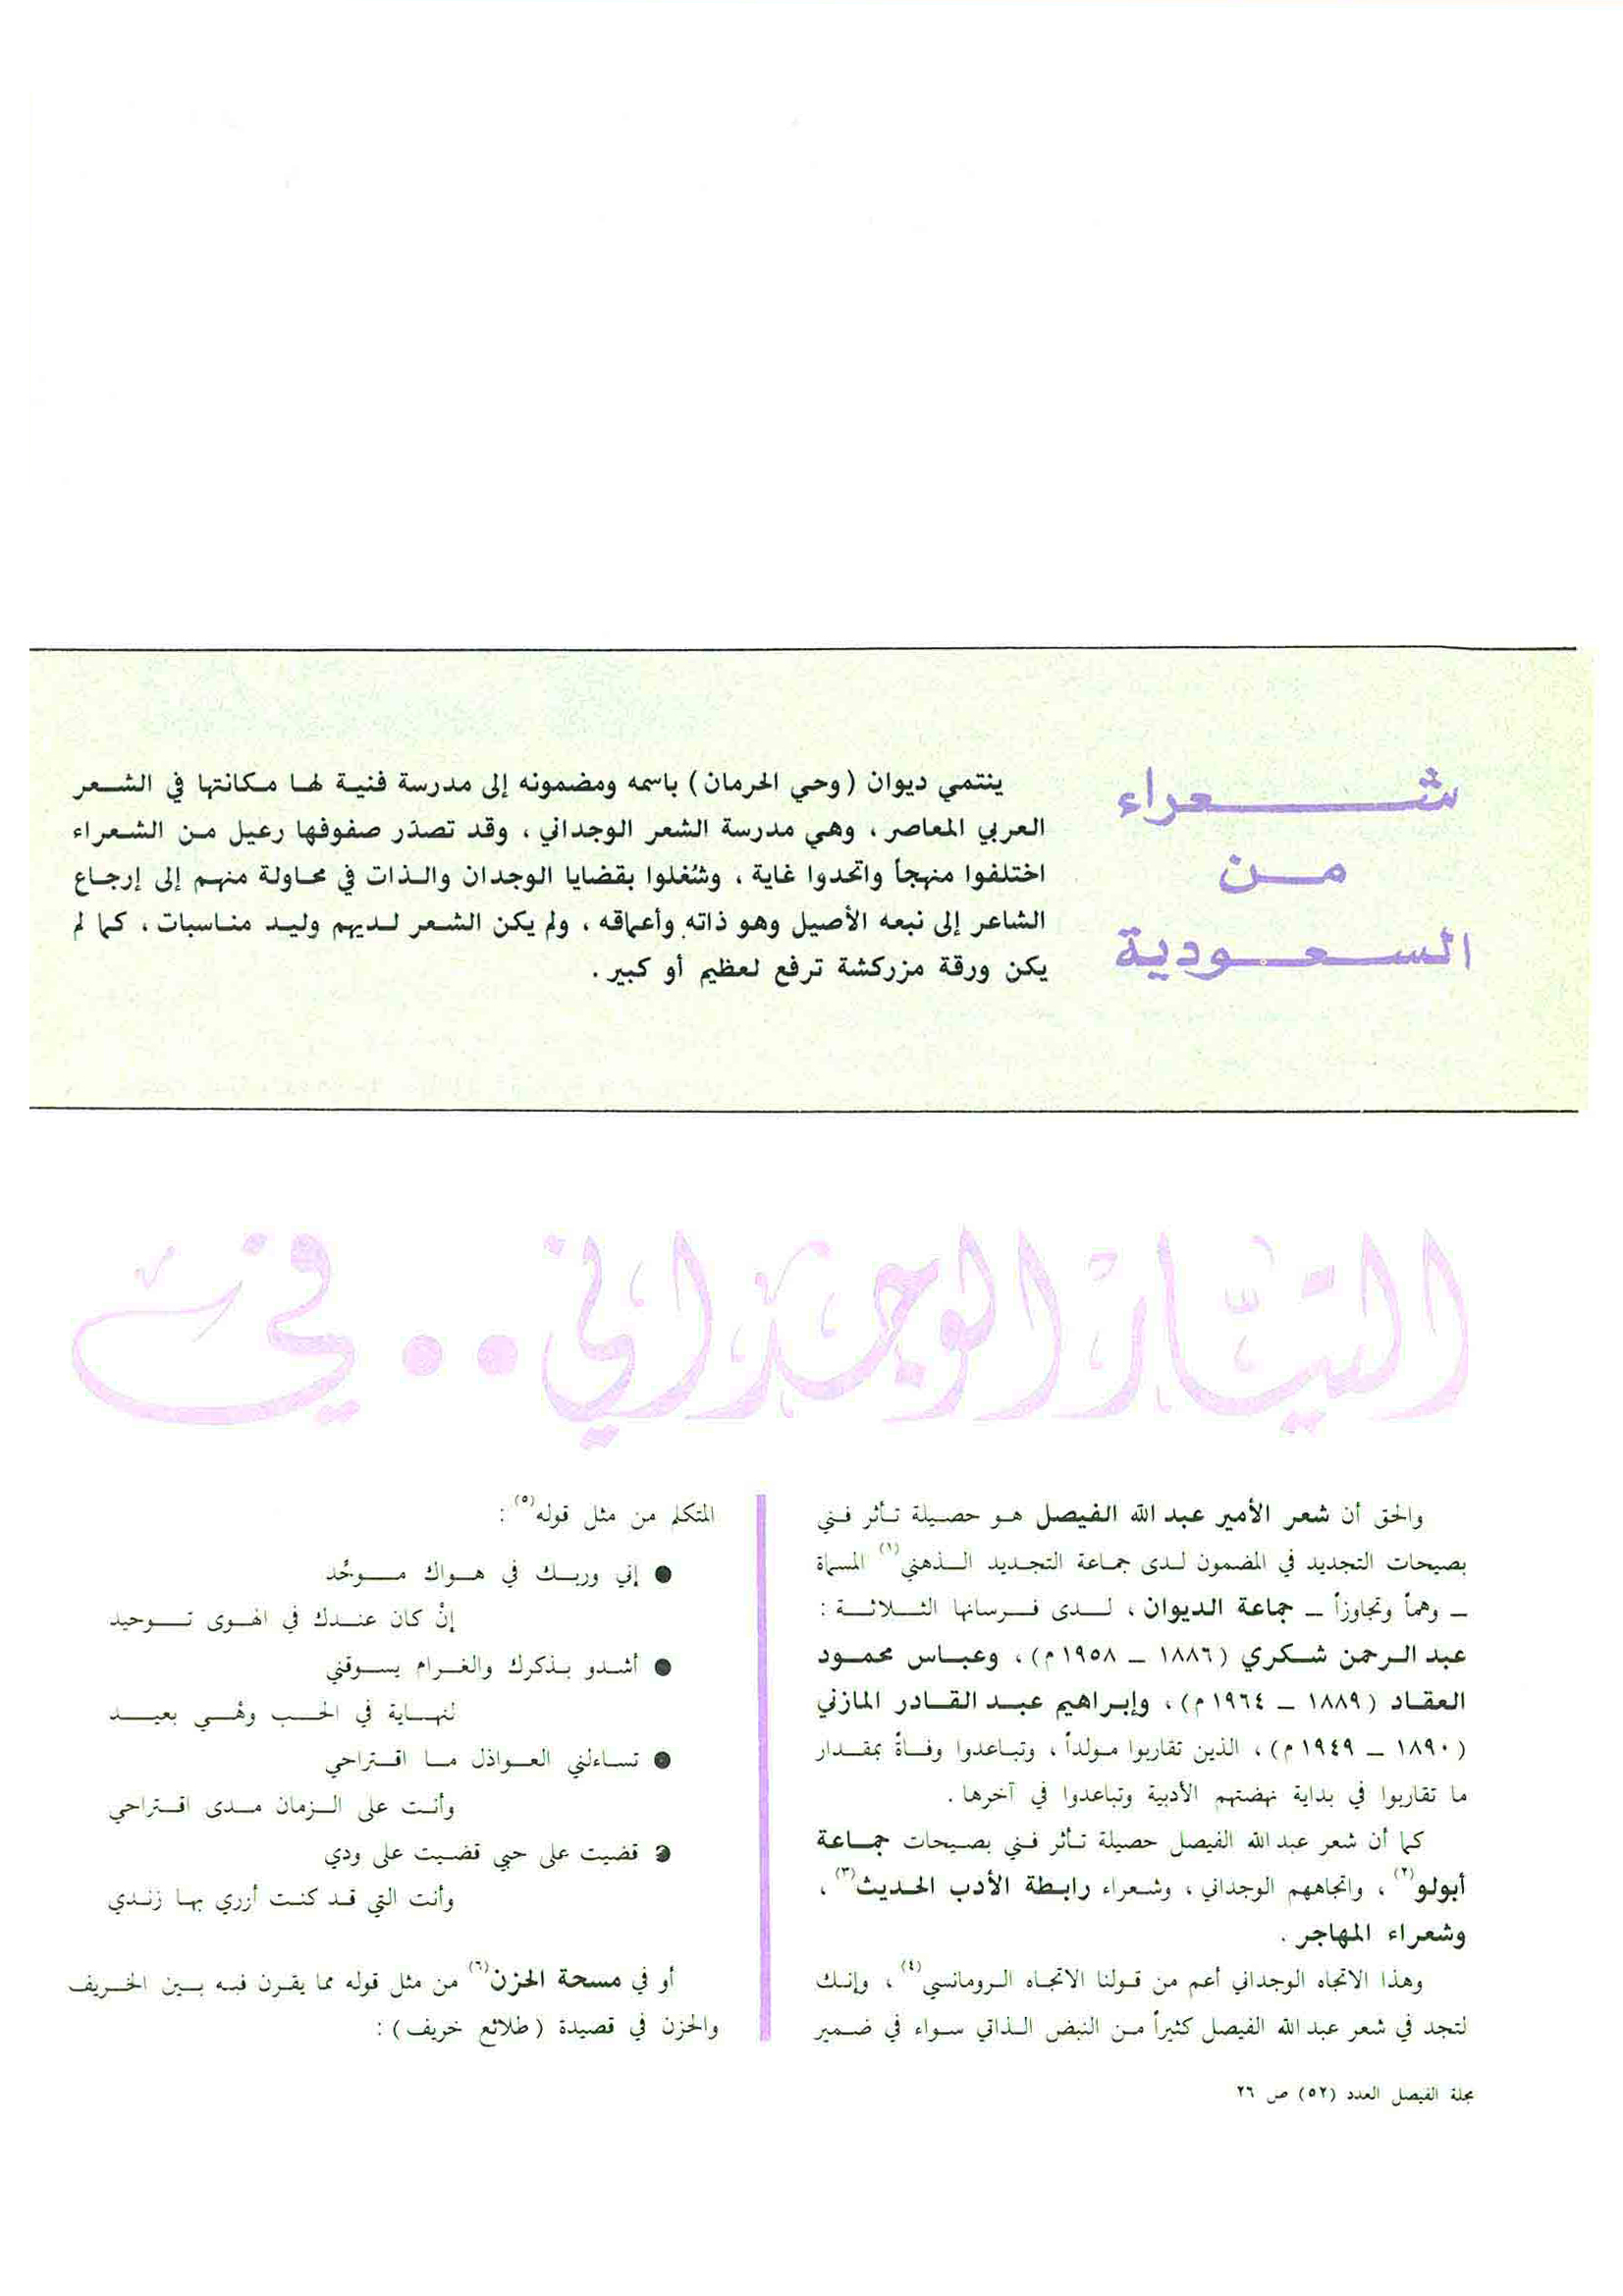 شعراء
من
السعودية
ينتمي ديوان (وحي الحرمان) باسمه ومضمونه إلى مدرسة فنية لها مكانتها في الشعر
العربي المعاصر ، وهي مدرسة الشعر الوجداني ، وقد تصدّر صفوفها رعيل من الشعراء
اختلفوا منهجاً واتحدوا غاية ، وشُغلوا بقضايا الوجدان والذات في محاولة منهم إلى إرجاع
الشاعر إلى نبعه الأصيل وهو ذاته وأعماقه ، ولم يكن الشعر لديهم وليد مناسبات ، كما لم
يكن ورقة مزركشة ترفع لعظيم أو كبير .
التيّار الوجداني .. في
والحق أن شعر الأمير عبد الله الفيصل هو حصيلة تأثر فني
بصيحات التجديد في المضمون لدى جماعة التجديد الذهني(١) المسماة
ـ وهماً وتجاوزاً ـ جماعة الديوان ، لدى فرسانها الثلاثة :
عبد الرحمن شكري (١٨٨٦ ـ ١٩٥٨ م) ، وعباس محمود
العقاد (١٨٨٩ ـ ١٩٦٤ م) ، وإبراهيم عبد القادر المازني
(١٨٩٠ ـ ١٩٤٩ م) ، الذين تقاربوا مولداً ، وتباعدوا وفاةً بمقدار
ما تقاربوا في بداية نهضتهم الأدبية وتباعدوا في آخرها .
كما أن شعر عبد الله الفيصل حصيلة تأثر فني بصيحات جماعة
أبولو(٢) ، واتجاههم الوجداني ، وشعراء رابطة الأدب الحديث(٣) ،
وشعراء المهاجر .
وهذا الاتجاه الوجداني أعم من قولنا الاتجاه الرومانسي(٤) ، وإنك
لتجد في شعر عبد الله الفيصل كثيراً من النبض الذاتي سواء في ضمير
المتكلم من مثل قوله(٥) :
● إني وربك في هواك موحُد
إنْ كان عندك في الهوى توحيد
● أشدو بذكرك والغرام يسوقني
لنهاية في الحب وهْي بعيد
● تساءلني العواذل ما اقتراحي
وأنت على الزمان مدى اقتراحي
● قضيت على حبي قضيت على ودي
وأنت التي قد كنت أزري بها زندي
أو في مسحة الحزن(٦) من مثل قوله مما يقرن فيه بين الخريف
والحزن في قصيدة (طلائع خريف) :
مجلة الفيصل العدد (٥٢) ص ٢٦